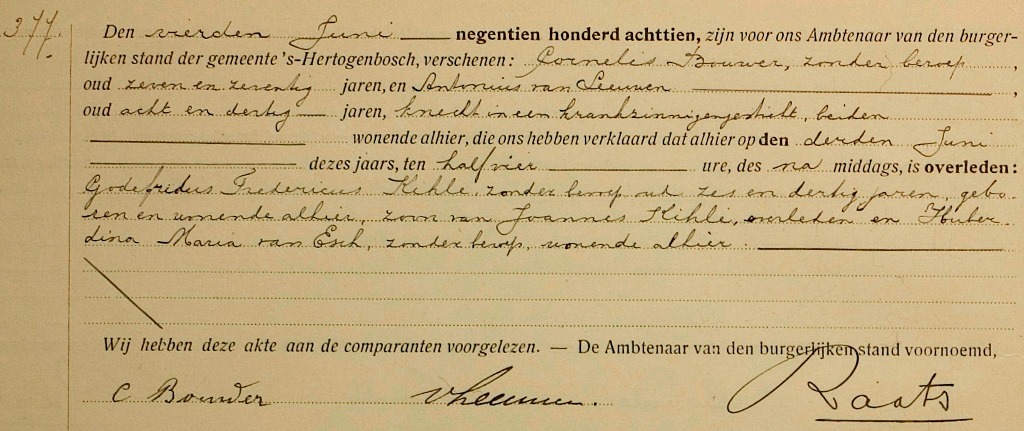 377.
Den vierden Juni negentien honderd achttien, zijn voor ons Ambtenaar van den burger-
lijken stand der gemeente 's-Hertogenbosch, verschenen: Cornelis Bouwer, zonder beroep,
oud zeven en zeventig jaren, en Antonius van Leeuwen,
oud acht en dertig jaren, knecht in een krankzinnigengesticht, beiden
wonende alhier, die ons hebben verklaard dat alhier op den derden Juni
dezes jaars, ten half vier ure, des na middags, is overleden:
Godefridus Fredericus Kihle, zonder beroep, oud zes en dertig jaren, gebo-
ren en wonende alhier, zoon van Joannes Kihle, overleden en Huber-
dina Maria van Esch, zonder beroep, wonende alhier.
Wij hebben deze akte aan de comparanten voorgelezen. — De Ambtenaar van den burgerlijken stand voornoemd,
C Bouwer vLeeuwen. Raats